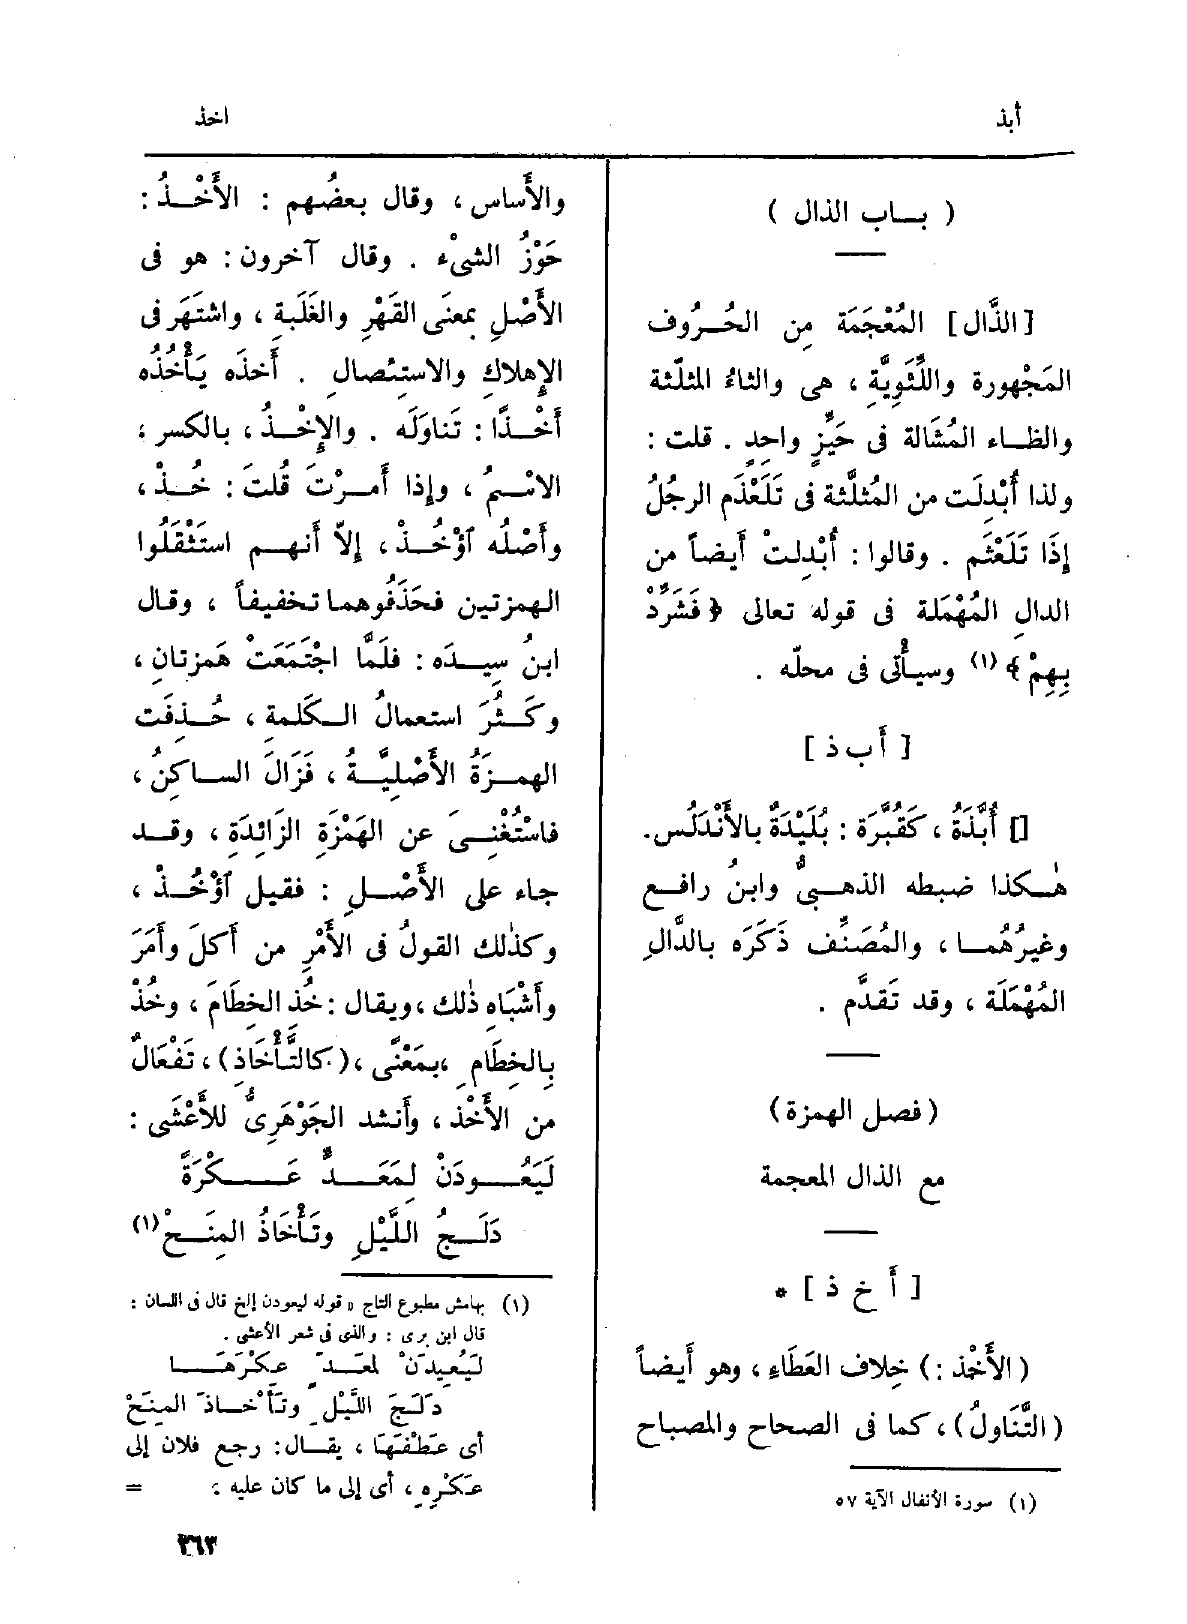 أبذ
اخذ
( بـاب الذال )
[الذَّال] المُعْجَمَة مِن الحُـروف
المَجْهورة واللِّثَوِيَّة ، هى والثاءُ المثلّثة
والظـاء المُشَالة فى حَيِّزٍ واحِدٍ . قلت :
ولذا أُبْدِلَت من المُثلَّثة فى تَلَعْذَم الرجُلُ
إِذَا تَلَعْثَم . وقالوا : أُبْدِلتْ أَيضاً من
الدالِ المُهْمَلة فى قوله تعالى ﴿ فَشَرِّذْ
بِهِمْ ﴾ (١) وسيأْتى فى محلّه .
[ أ ب ذ ]
[] أُبَّذَةُ ، كَقُبَّرَة : بُلَيْدَةٌ بالأَنْدَلُس.
هٰـكذا ضبطه الذهبـىُّ وابنُ رافـع
وغيرُهُمـا ، والمُصَنِّف ذَكَرَه بالدَّالِ
المُهْمَلَة ، وقد تَقدَّم .
(فصل الهمزة)
مع الذال المعجمة
[ أ خ ذ ] *
( الأَخْذ :) خِلاف العَطَاءِ ، وهو أَيضاً
(التَّنَاولُ) ، كما فى الصحاح والمصباح
(١) سورة الأنفال الآية ٥٧
والأَساس ، وقال بعضُهم : الأَخْـذُ :
حَوْزُ الشىْء . وقال آخرون : هو فى
الأَصْلِ بمعنَى القَهْرِ والغَلَبَةِ ، واشتَهَر فى
الإِهلاكِ والاستِئصالِ . أَخذَه يَـأْخُذُه
أَخْـذًا : تَناوَلَه . والإِخْـذُ ، بالكسر ،
الاسْـمُ ، وإِذا أَمـرْتَ قُلتَ : خُـذْ ،
وأَصْلُه ٱؤْخُـذْ ، إِلاّ أَنهـم استَثْقَلُوا
الهمزتين فحَذَفُوهما تخفيفاً ، وقال
ابنُ سِيـدَه : فلَمَّا اجْتَمَعَتْ هَمزتانِ ،
وكَـثُرَ استعمالُ الـكَلمةِ ، حُـذِفَت
الهمـزَةُ الأَصْلِيَّـةُ ، فَزَالَ الســاكنُ ،
فاسْتُغْنِـىَ عن الهَمْزَةِ الزَائِدَةِ ، وقـد
جاء على الأَصْـلِ : فقيل ٱؤْخُـذْ ،
وكذٰلك القولُ فى الأَمْرِ من أَكلَ وأَمَرَ
وأَشْبَاهِ ذٰلك ، ويقال : خُذِ الخِطَامَ ، وخُذْ
بِالخِطَامِ ، بمَعْنًى ، (كالتَّأْخَاذِ) ، تَفْعَالٌ
من الأَخْذ ، وأَنشد الجَوْهَرِىُّ للأَعْشَى :
لَيَعُــودَنْ لِمَعَــدٍّ عَــكْرَةً
دَلَـجُ اللَّيْلِ وتَأْخَاذُ المِنَـحْ (١)
(١) بهامش مطبوع التاج « قوله ليعودن إلخ قال فى اللسان :
قال ابن برى : والذى فى شعر الأعشى .
لَيُعِيدَنْ لمعَدٍّ عكْرَهَــا
دَلَجَ اللَّيْلِ وتَأْخـاذَ المِنَحْ
أى عَطْفَتَهَا ، يقـال : رجع فلان إلى
عَكْرِه ، أى إلى ما كان عليه . =
٣٦٣